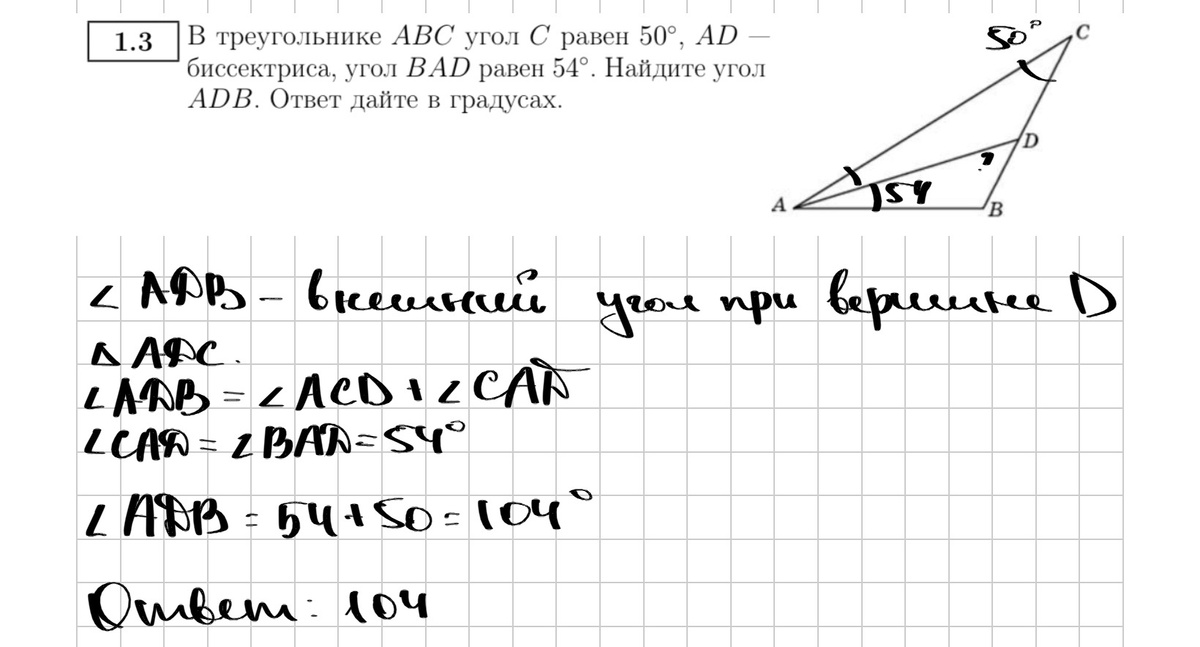 1.3 В треугольнике ABC угол C равен 50°, AD —
биссектриса, угол BAD равен 54°. Найдите угол
ADB. Ответ дайте в градусах.
50°
C
D
?
54
A
B
∠ ADB – внешний угол при вершине D
Δ ADC.
∠ADB = ∠ACD + ∠CAD
∠CAD = ∠BAD = 54°
∠ADB = 54 + 50 = 104°
Ответ: 104